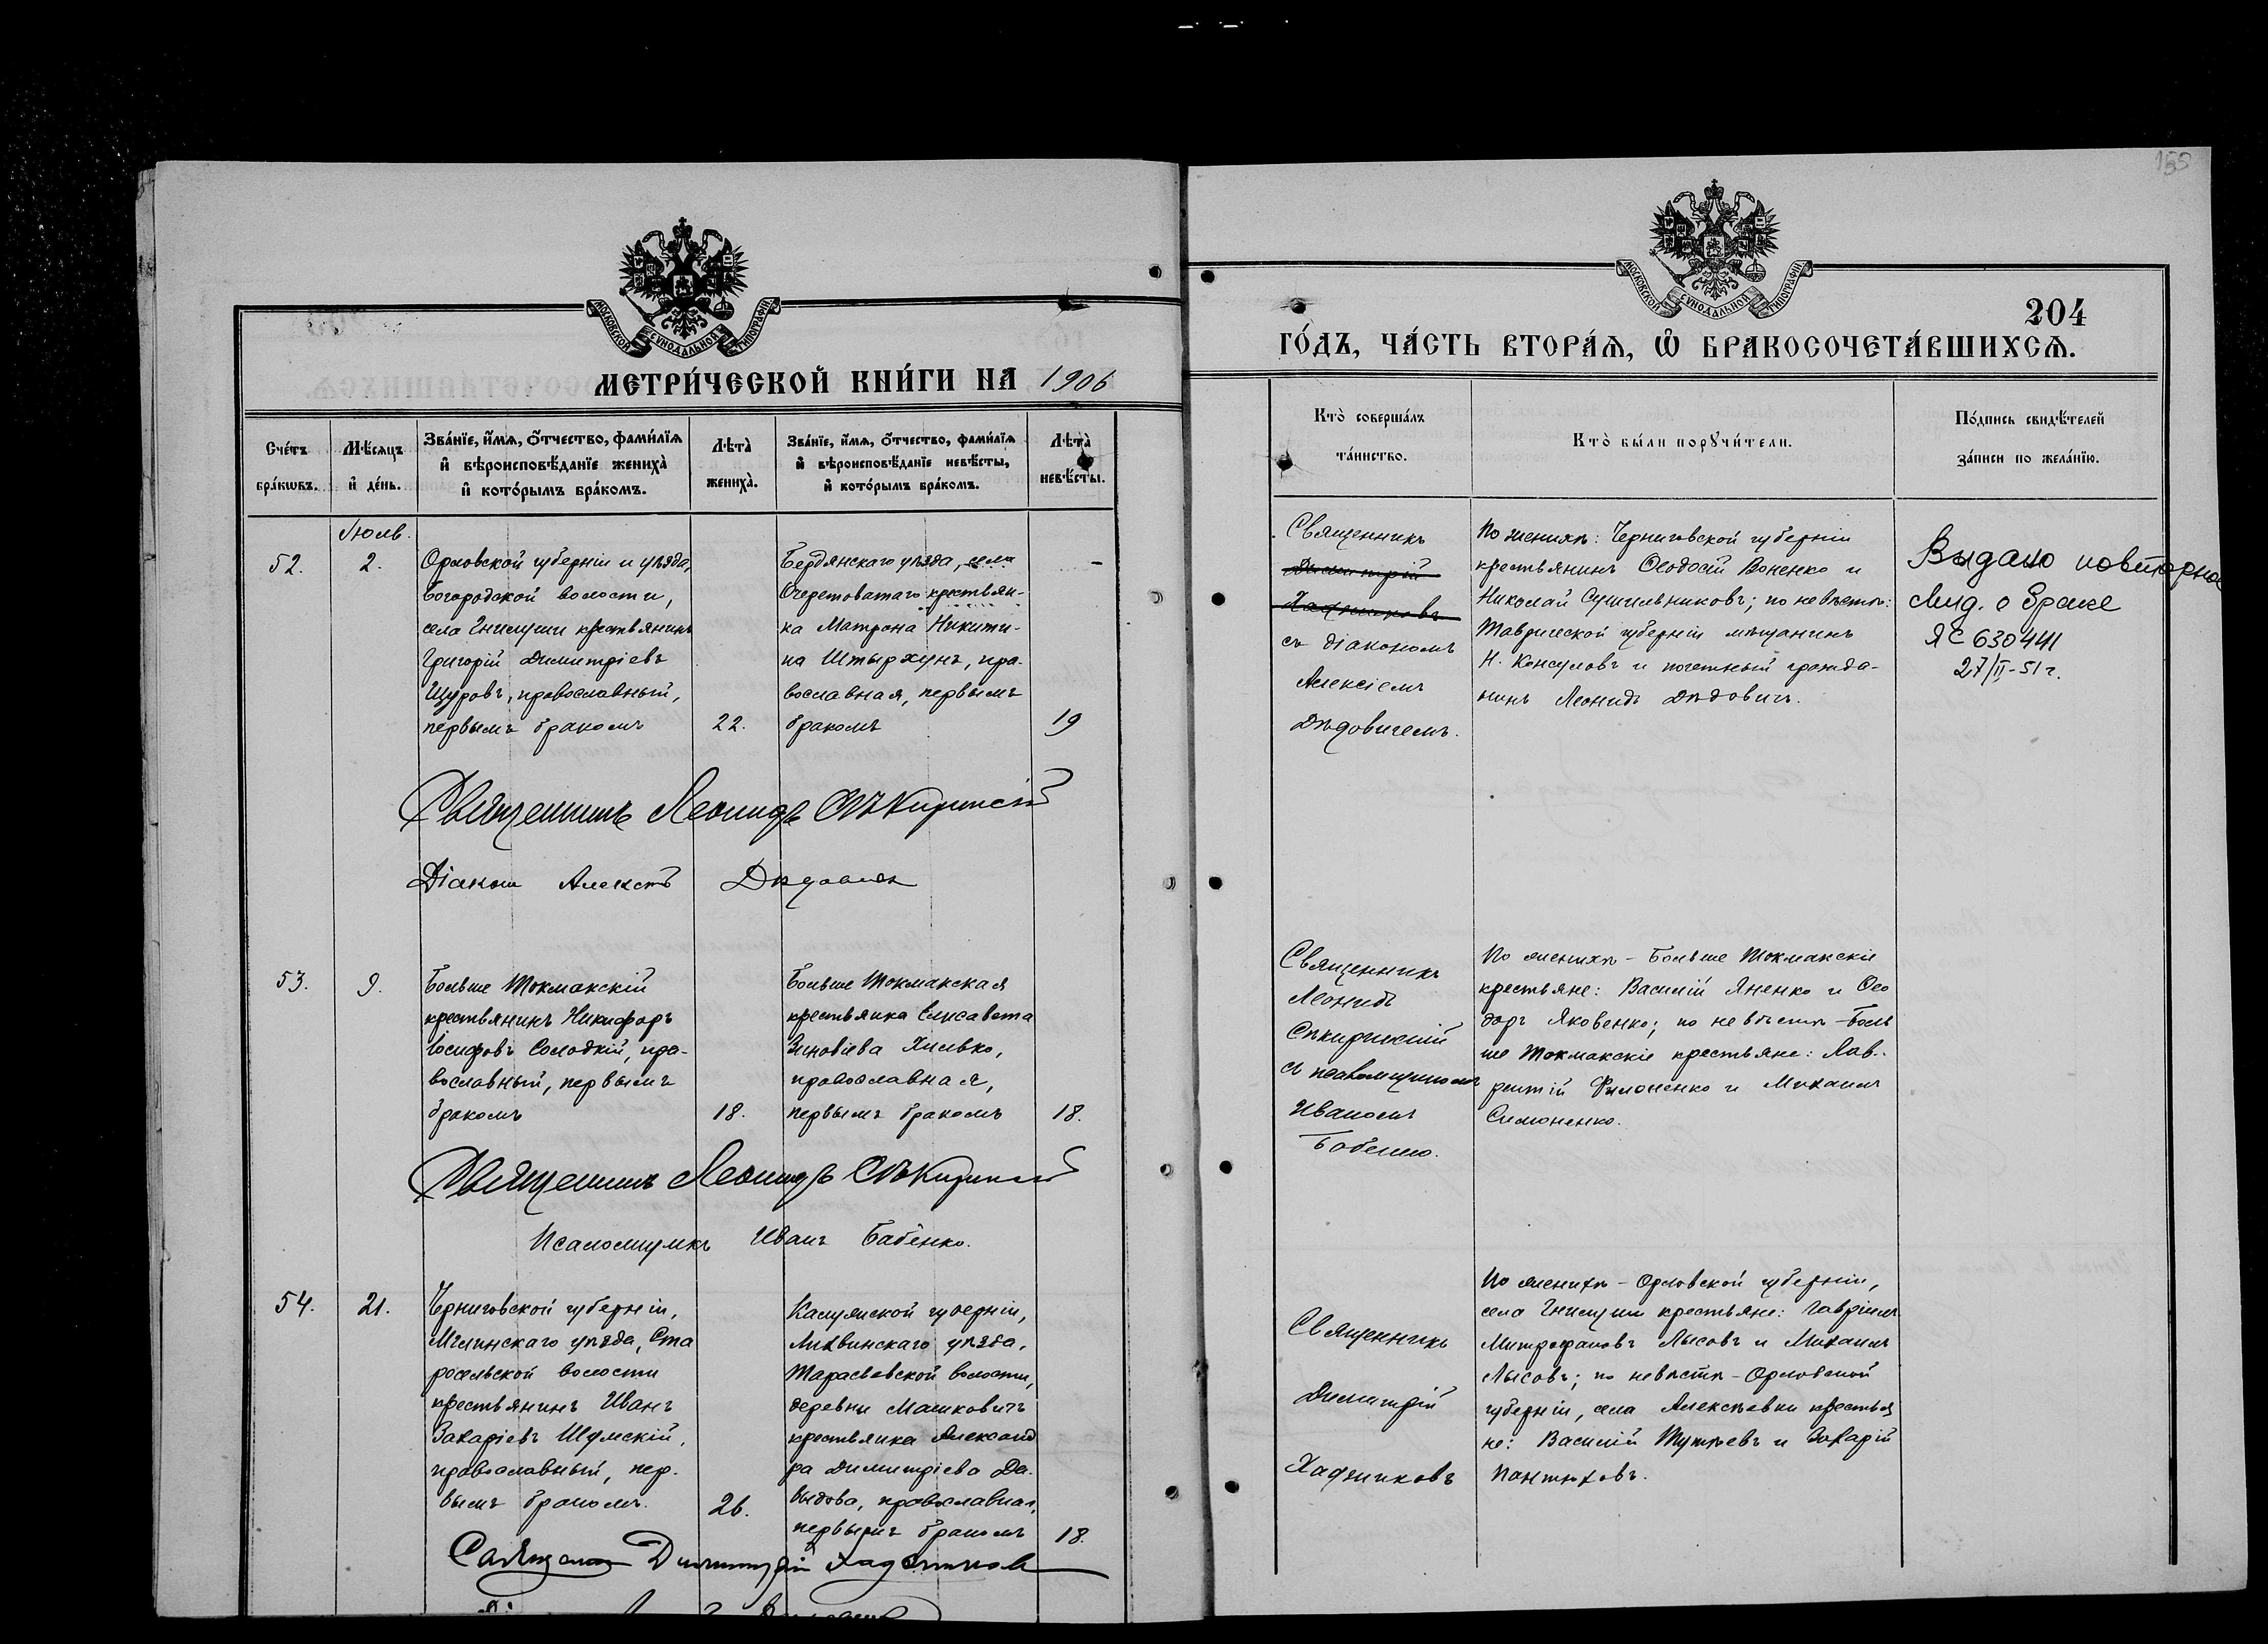 155
МОСКОВСКОЙ СѴНОДАЛЬНОЙ ТИПОГРАФІИ
МЕТРИ́ЧЕСКОЙ КНИ́ГИ НА 1906
Сче́тъ бра́кѡвъ.
Мѣ́сяцъ и҆ де́нь.
Зва́нїе, и҆́мѧ, ѻ҆́тчество, фами́лїѧ
и҆ вѣроисповѣ́данїе жениха̀
и҆ кото́рымъ бра́комъ.
Лѣта̀ жениха̀.
Зва́нїе, и҆́мѧ, ѻ҆́тчество, фами́лїѧ
и҆ вѣроисповѣ́данїе невѣ́сты,
и҆ кото́рымъ бра́комъ.
Лѣта̀ невѣ́сты.
Іюль.
52.
2.
Орловской губерніи и уѣзда,
Богородской волости,
села Гнилуши крестьянинъ
Григорій Димитріевъ
Щуровъ, православный,
первымъ бракомъ
22.
Бердянскаго уѣзда, села
Очеретоватаго крестьян-
ка Матрона Никити-
на Штырхунъ, пра-
вославная, первымъ
бракомъ
19
Священникъ Леонидъ Сѣкиринскій
Діаконъ Алексѣй Дѣдовичъ
53.
9.
Больше Токмакскій
крестьянинъ Никифоръ
Іосифовъ Солодкій, пра-
вославный, первымъ
бракомъ
18.
Больше Токмакская
крестьянка Елисавета
Зиновіева Хилько,
православная,
первымъ бракомъ
18.
Священникъ Леонидъ Сѣкиринскій
Псаломщикъ Иванъ Бабенко.
54.
21.
Черниговской губерніи,
Мглинскаго уѣзда, Ста
росельской волости
крестьянинъ Иванъ
Захаріевъ Шумскій,
православный, пер-
вымъ бракомъ.
26.
Калужской губерніи,
Лихвинскаго уѣзда,
Тарасьевской волости,
деревни Машковичъ
крестьянка Александ
ра Димитріева Да-
выдова, православная,
первымъ бракомъ
18.
Священникъ Димитрій Хаджиновъ
МОСКОВСКОЙ СѴНОДАЛЬНОЙ ТИПОГРАФІИ
204
ГО́ДЪ, ЧА́СТЬ ВТОРА́Ѧ, Ѡ҆ БРАКОСОЧЕТА́ВШИХСѦ.
Кто̀ соверша́лъ
та́инство.
Кто̀ бы́ли порꙋчи́тели.
По́дпись свидѣ́телей
за́писи по жела́нїю.
Священникъ
Димитрій
Хаджиновъ
съ діакономъ
Алексіемъ
Дѣдовичемъ.
По женихѣ: Черниговской губерніи
крестьянинъ Ѳеодосій Воненко и
Николай Сушильниковъ; по невѣстѣ:
Таврической губерніи мѣщанинъ
Н. Консуловъ и почетный гражда-
нинъ Леонидъ Дѣдовичъ.
Выдано повторное
свид. о браке
ЯС 630441
27/II-51 г.
Священникъ
Леонидъ
Сѣкиринскій
съ псаломщикомъ
Иваномъ
Бабенко.
По женихѣ - Больше Токмакскіе
крестьяне: Василій Яненко и Ѳео
доръ Яковенко; по невѣстѣ - Боль
ше Токмакскіе крестьяне: Лав-
рентій Филоненко и Михаилъ
Симоненко.
Священникъ
Димитрій
Хаджиновъ
По женихѣ - Орловской губерніи,
села Гнилуши крестьяне: Гавріилъ
Митрофановъ Лысовъ и Михаилъ
Лысовъ; по невѣстѣ - Орловской
губерніи, села Алексѣевки крестья
не: Василій Тутѣевъ и Захарій
Пантюховъ.